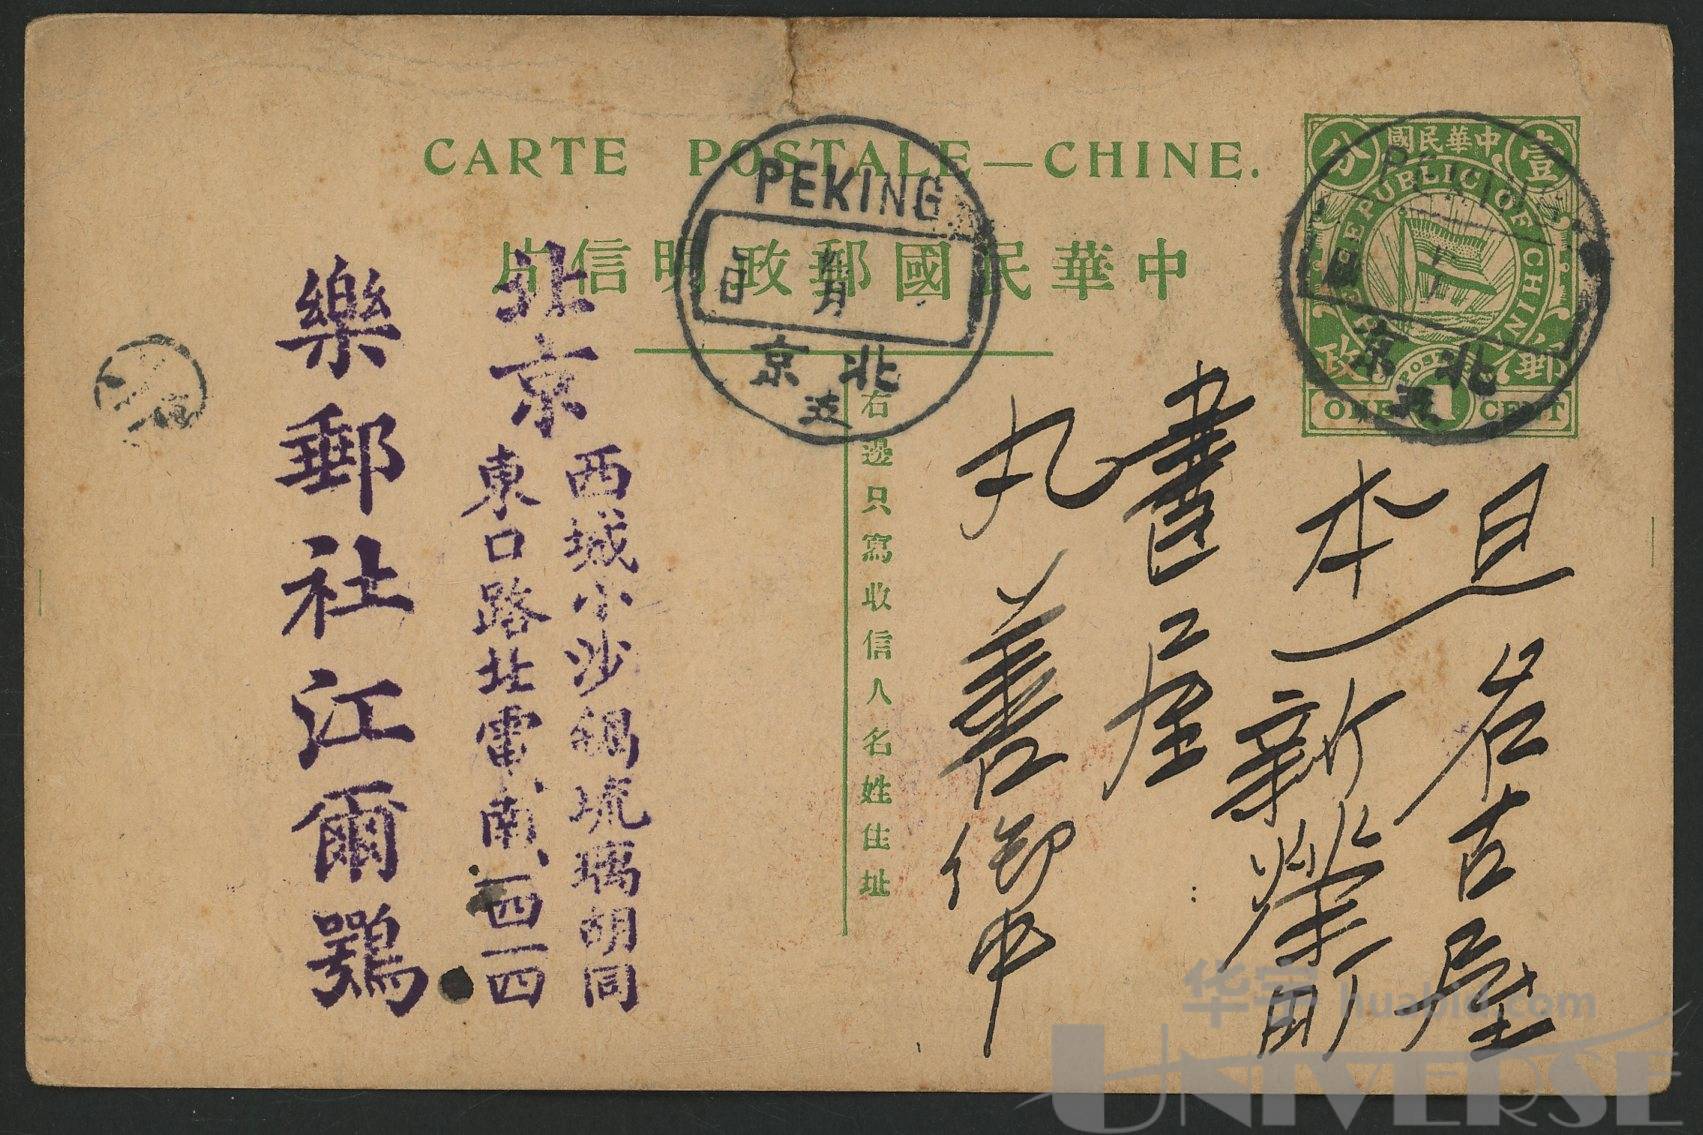 CARTE POSTALE—CHINE.
中華民國郵政明信片
右邊只寫收信人名姓住址
中華民國
壹
分
REPUBLIC OF CHINA
郵
政
POSTAGE
1
ONE CENT
PEKING
年月
日
北京
支
PEKING
北京
支
名古屋
本
新榮町
書店
丸善御中
西城小沙鍋琉璃胡同
東口路北電南一四一四
北京
樂郵社江爾鶚
华宇 huabid.com
UNIVERSE